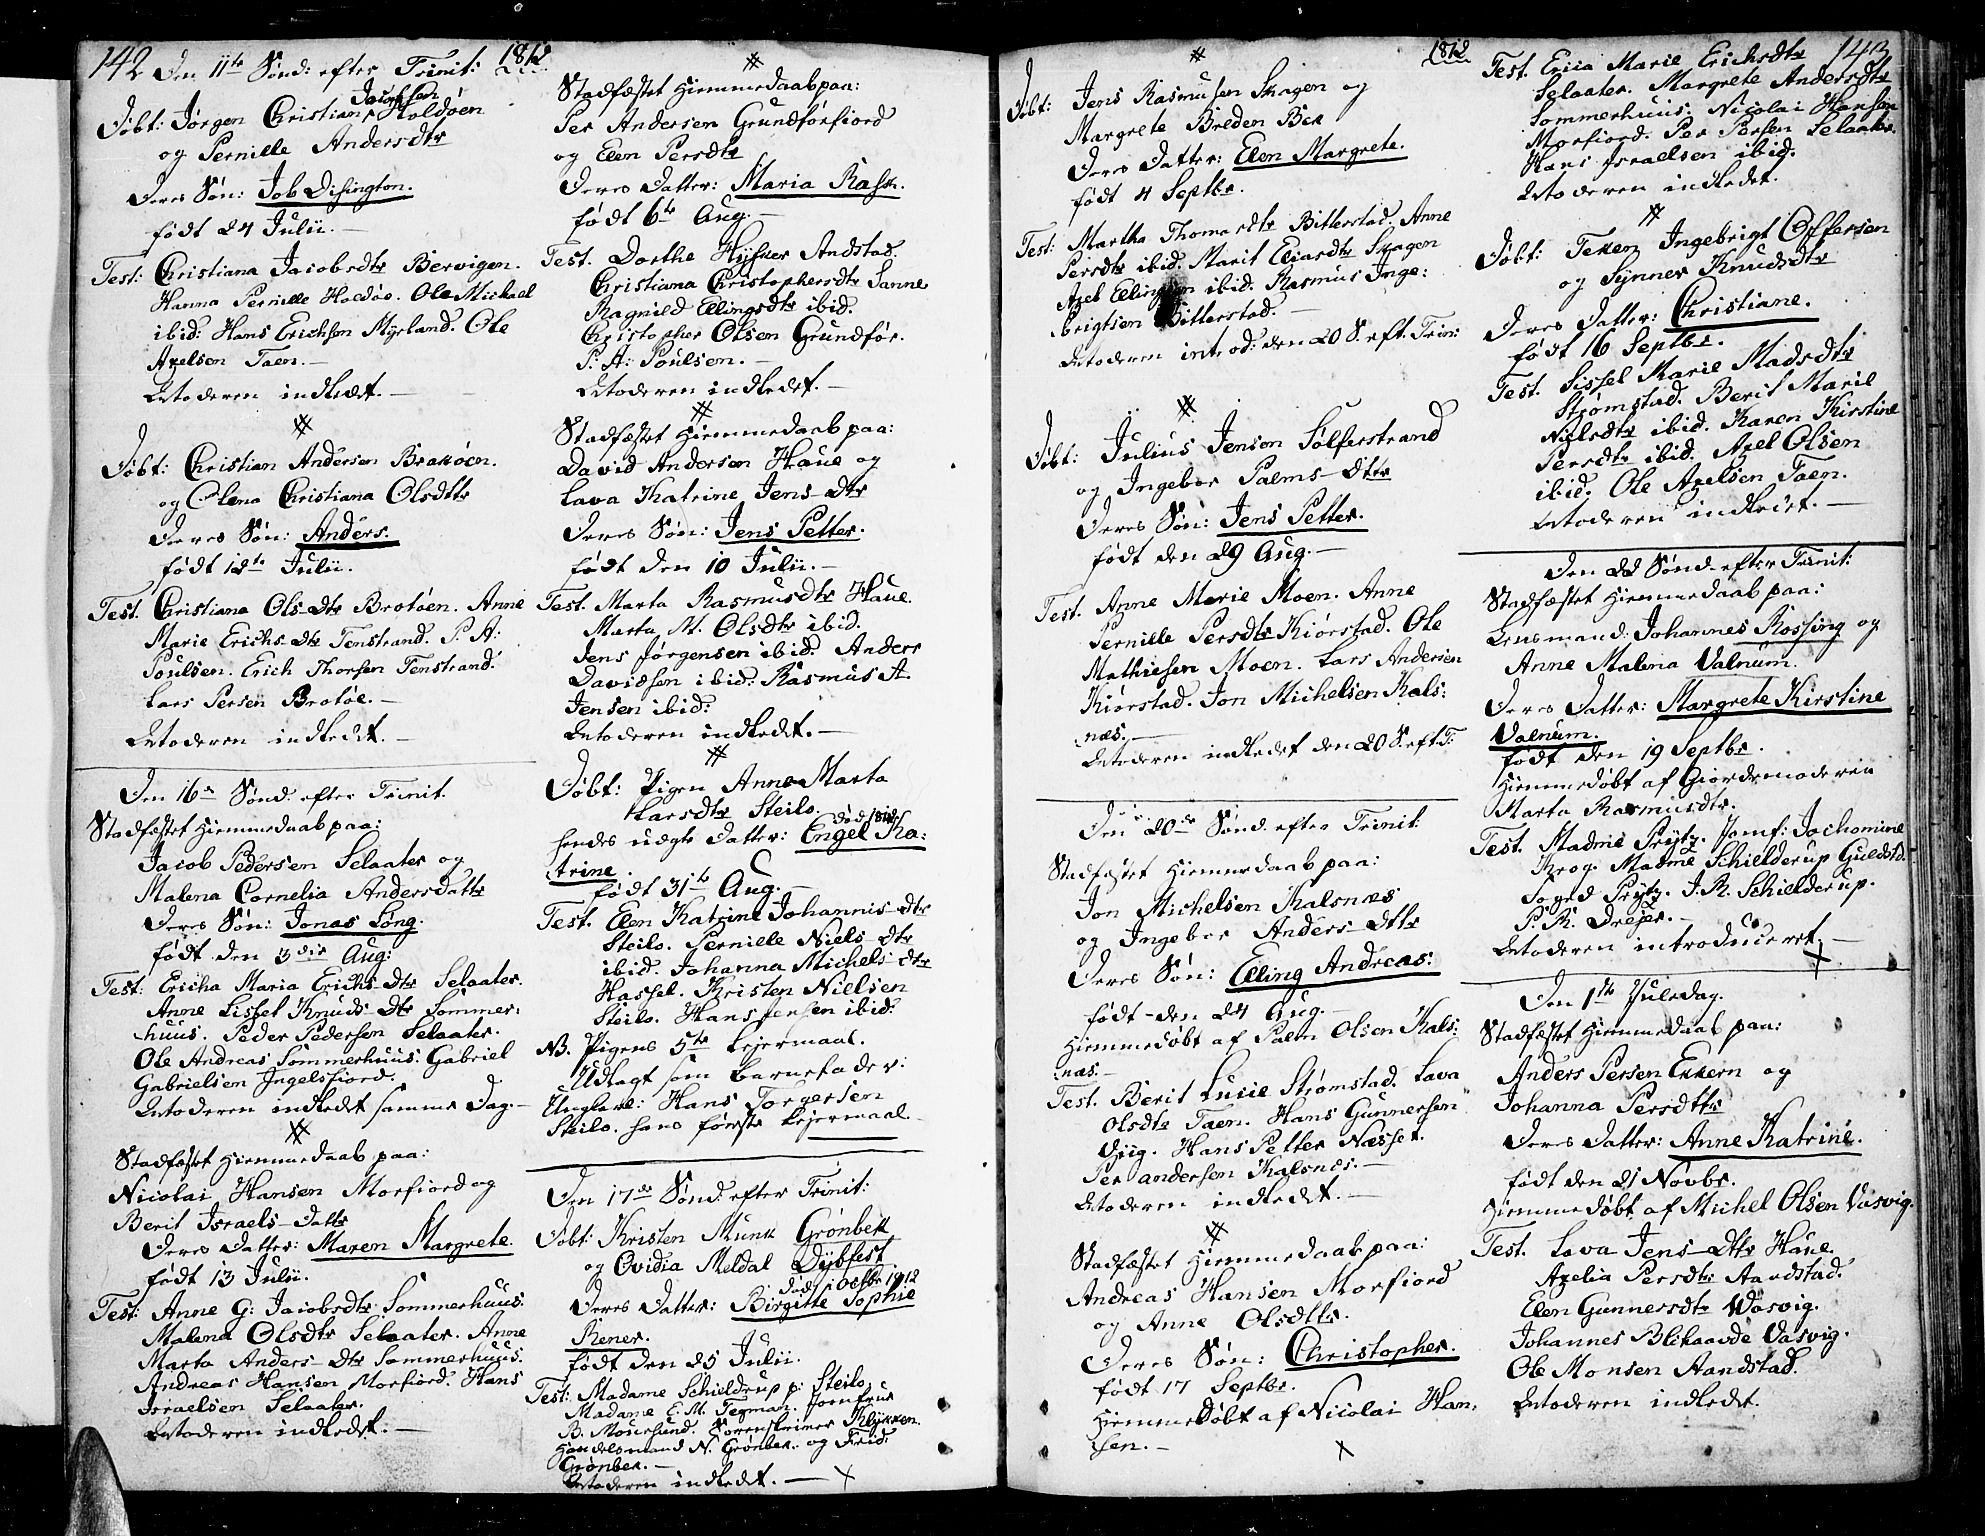 142
1812
Den 11te Sønd: efter Trinit:
Døbt: Jørgen Christian Jacobsen Holdøen
og Pernille Andersdtr
Deres Søn: Job Disington.
født 24 Julii.
Test: Christiana Jacobsdtr Bervigen.
Hanna Pernille Holdøe. Ole Michael
ibid: Hans Erichsen Myrland. Ole
Axelsen Taen.
Moderen indledet.
Døbt: Christian Andersen Brakøen.
og Olena Christiana Olsdttr
Deres Søn: Anders.
født 12te Julii.
Test. Christiana Ols-dtr Brotøen. Anne
Marie Erichs-dtr Fenstrand. P. A:
Poulsen. Erich Thorsen Fenstrand.
Lars Persen Brotøe.
Moderen indledet.
Den 16de Sønd. efter Trinit.
Stadfæstet Hiemmedaab paa:
Jacob Pedersen Selaater og
Malena Cornelia Andersdattr
Deres Søn: Jonas Long.
født den 3die Aug:
Test: Ericha Maria Erichs-dtr Selaater.
Anne Lisset Knuds-dtr Sommer:
huus. Peder Pedersen Selaater.
Ole Andreas Sommerhuus. Gabriel
Gabrielsen Ingelsfiord.
Moderen indledet samme Dag.
Stadfæstet Hiemmedaab paa:
Nicolai Hansen Morfiord og
Berit Israels-datr
Deres Datter: Maren Margrete.
født 13 Julii.
Test: Anne G: Jacobsdtr Sommerhuus.
Malena Olsdtr Selaater. Anne
Marta Anders-dtr Sommerhuus.
Andreas Hansen Morfiord. Hans
Israelsen Selaater.
Moderen indledet.
Stadfæstet Hiemmedaab paa:
Per Andersen Grundførfiord
og Elen Persdtr
Deres Datter: Maria Rask.
født 6te Aug.
Test. Dorthe Andstad.
Christiana Christophersdtr Sanne
Ragnild Ellingsdtr ibid.
Christopher Olsen Grundfør.
P. A: Poulsen.
Moderen indledet.
Stadfæstet Hiemmedaab paa:
David Andersen Haue og
Lava Katrine Jens-dtr
Deres Søn: Jens Petter.
født den 10 Julii.
Test. Marta Rasmusdtr Haue.
Marta M. Olsdtr ibid.
Jens Jørgensen ibid. Anders
Davidsen ibid: Rasmus A.
Jensen ibid:
Moderen indledet.
Døbt: Pigen Anne Marta
Larsdtr Steilo.
død 1812
hendes uægte Datter: Engel Ka:
trine.
født 31te Aug.
Test. Elen Katrine Johannis-dtr
Steilo. Pernille Niels-dtr
ibid. Johanna Michels-dtr
Hassel. Kristen Nielsen
Steilo. Hans Jensen ibid.
NB. Pigens 5te Lejermaal.
Udlagt som Barnefader:
Ungkarl: Hans Torgersen
Steilo. hans første Lejermaal.
Den 17de Sønd. efter Trinit:
Døbt: Kristen Munk Grønbek
og Ovidia Meldal Dybfest
død i Octbr 1812
Deres Datter: Birgitte Sophie
Kener.
født den 25 Julii.
Test: Madame Schieldrup p: Steilo.
Madame E. M. Tegman. Jomfrue
B. Moursund. Sorenskriver Klykken.
Handelsmand N. Grønbek. og Frid:
Grønbek.
Moderen indledet.
1812
Døbt: Jens Rasmusen Skagen og
Margrete Breden Bek
Deres Datter: Elen Margrete.
født 4 Septbr.
Test: Martha Thomasdtr Bitterstad. Anne
Persdtr ibid. Marit Eliardtr Skagen
Axel Ellingsen ibid. Rasmus Inge:
brigtsen Bitterstad.
Moderen introd: den 20 S. eft. Trin:
Døbt: Julius Jensen Sølferstrand
og Ingebor Palms-dtr
Deres Søn: Jens Petter.
født den 29 Aug.
Test. Anne Marie Moen. Anne
Pernille Persdtr Kiørstad. Ole
Mathiesen Moen. Lars Andersen
Kiørstad. Jon Michelsen Kals:
næs.
Moderen indledet den 20 S. eft. T:
Den 20de Sønd. efter Trinit:
Stadfæstet Hiemmedaab paa:
Jon Michelsen Kalsnæs
og Ingebor Anders-dttr
Deres Søn: Elling Andreas.
født den 24 Aug.
Hiemmedøbt af Palm Olsen Kals:
næs.
Test. Berit Lucie Strømstad. Lava
Olsdtr Taen. Hans Gunnersen
Vyig. Hans Petter Næsset.
Per Andersen Kalsnæs.
Moderen indledet.
Stadfæstet Hiemmedaab paa:
Andreas Hansen Morfiord
og Anne Olsdttr.
Deres Søn: Christopher.
født 17 Septbr.
Hiemmedøbt af Nicolai Han,
sen.
143
Test. Ericia Marie Erichsdtr
Selaater. Margrete Andersdtr
Sommerhuus. Nicolai Hansen
Morfiord. Per Persen Selaater.
Hans Israelsen ibid.
Moderen indledet.
Døbt: Teken Ingebrigt Offersen
og Synner Knudsdtr
Deres Datter: Christiane.
født 16 Septbr.
Test. Sissel Marie Madsdtr
Strømstad. Berit Marie
Nielsdtr ibid. Karen Kirstine
Persdtr ibid. Axel Olsen
ibid. Ole Axelsen Taen.
Moderen indledet.
Den 22 Sønd. efter Trinit:
Stadfæstet Hiemmedaab paa:
Lensmand: Johannes Rossing og
Anne Malena Valnum.
Deres Datter: Margrete Kirstine
Valnum.
født den 19 Septbr.
Hiemmedøbt af Giordemoderen
Marta Rasmusdtr.
Test. Madme Prytz. Jomf: Jochomine
Krog. Madme Schielderup Guldstd.
Fogd Prytz. J. R. Schielderup.
P. K. Drejer.
Moderen introduceret.
Den 1ste Juledag.
Stadfæstet Hiemmedaab paa:
Anders Persen Ekkern og
Johanna Persdttr
Deres Datter: Anne Katrine.
født den 21 Novbr.
Hiemmedøbt af Michel Olsen Vasvig.
Test. Lava Jens-dttr Haue.
Axelia Persdtr Aandstad.
Elen Gunnersdtr Vasvig.
Johannes Vasvig.
Ole Monsen Aandstad.
Moderen indledet.